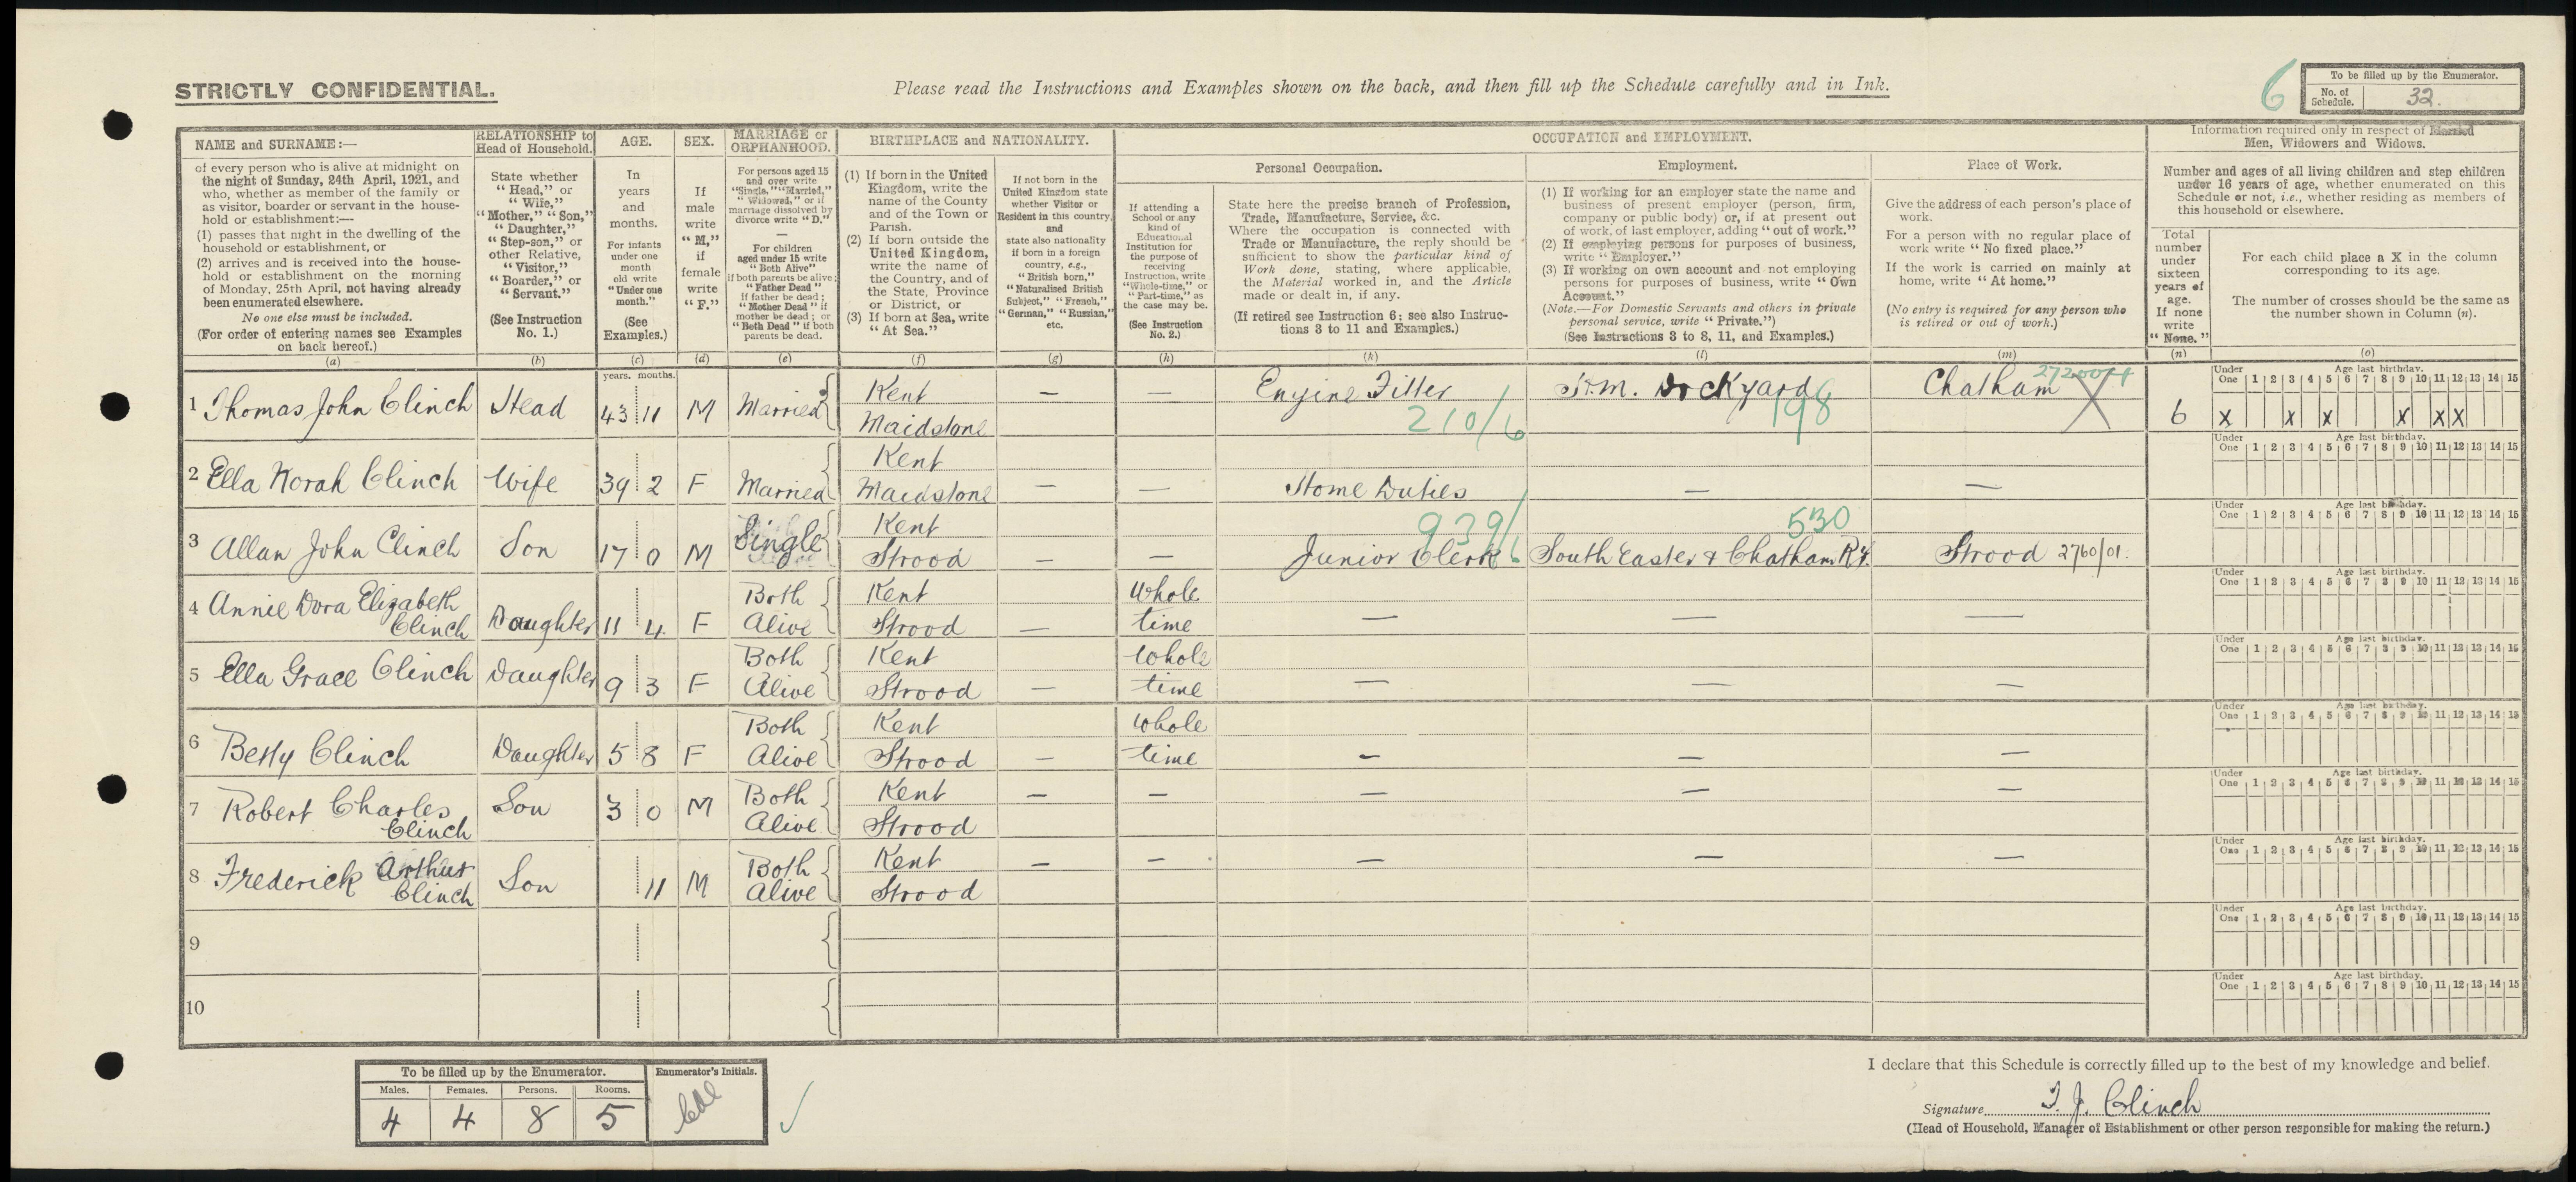 STRICTLY CONFIDENTIAL.
Please read the Instructions and Examples shown on the back, and then fill up the Schedule carefully and in Ink.
6
To be filled up by the Enumerator.
No. of Schedule. 32.
NAME and SURNAME:—
of every person who is alive at midnight on
the night of Sunday, 24th April, 1921, and
who, whether as member of the family or
as visitor, boarder or servant in the house-
hold or establishment:—
(1) passes that night in the dwelling of the
household or establishment, or
(2) arrives and is received into the house-
hold or establishment on the morning
of Monday, 25th April, not having already
been enumerated elsewhere.
No one else must be included.
(For order of entering names see Examples
on back hereof.)
(a)
RELATIONSHIP to
Head of Household.
State whether
"Head," or
"Wife,"
"Mother," "Son,"
"Daughter,"
"Step-son," or
other Relative,
"Visitor,"
"Boarder," or
"Servant."
(See Instruction
No. 1.)
(b)
AGE.
In
years
and
months.
For infants
under one
month
old write
"Under one
month."
(See
Examples.)
(c)
SEX.
If
male
write
"M,"
if
female
write
"F."
(d)
MARRIAGE or
ORPHANHOOD.
For persons aged 15
and over write
"Single," "Married,"
"Widowed," or if
marriage dissolved by
divorce write "D."
—
For children
aged under 15 write
"Both Alive"
if both parents be alive;
"Father Dead"
if father be dead;
"Mother Dead" if
mother be dead; or
"Both Dead" if both
parents be dead.
(e)
BIRTHPLACE and NATIONALITY.
(1) If born in the United
Kingdom, write the
name of the County
and of the Town or
Parish.
(2) If born outside the
United Kingdom,
write the name of
the Country, and of
the State, Province
or District, or
(3) If born at Sea, write
"At Sea."
(f)
If not born in the
United Kingdom state
whether Visitor or
Resident in this country,
and
state also nationality
if born in a foreign
country, e.g.,
"British born,"
"Naturalised British
Subject," "French,"
"German," "Russian,"
etc.
(g)
OCCUPATION and EMPLOYMENT.
If attending a
School or any
kind of
Educational
Institution for
the purpose of
receiving
Instruction, write
"Whole-time," or
"Part-time," as
the case may be.
(See Instruction
No. 2.)
(h)
Personal Occupation.
State here the precise branch of Profession,
Trade, Manufacture, Service, &c.
Where the occupation is connected with
Trade or Manufacture, the reply should be
sufficient to show the particular kind of
Work done, stating, where applicable,
the Material worked in, and the Article
made or dealt in, if any.
(If retired see Instruction 6; see also Instruc-
tions 3 to 11 and Examples.)
(k)
Employment.
(1) If working for an employer state the name and
business of present employer (person, firm,
company or public body) or, if at present out
of work, of last employer, adding "out of work."
(2) If employing persons for purposes of business,
write "Employer."
(3) If working on own account and not employing
persons for purposes of business, write "Own
Account."
(Note.—For Domestic Servants and others in private
personal service, write "Private.")
(See Instructions 3 to 8, 11, and Examples.)
(l)
Place of Work.
Give the address of each person's place of
work.
For a person with no regular place of
work write "No fixed place."
If the work is carried on mainly at
home, write "At home."
(No entry is required for any person who
is retired or out of work.)
(m)
Information required only in respect of Married
Men, Widowers and Widows.
Number and ages of all living children and step children
under 16 years of age, whether enumerated on this
Schedule or not, i.e., whether residing as members of
this household or elsewhere.
Total
number
under
sixteen
years of
age.
If none
write
"None."
(n)
For each child place a X in the column
corresponding to its age.
The number of crosses should be the same as
the number shown in Column (n).
(o)
years. months.
Under One Age last birthday. 1 2 3 4 5 6 7 8 9 10 11 12 13 14 15
1 Thomas John Clinch Head 43 11 M Married Kent Maidstone — — Engine Fitter 210/6 H.M. Dockyard 198 Chatham 6 X X X X X X
2 Ella Norah Clinch Wife 39 2 F Married Kent Maidstone — — Home Duties — —
Under One Age last birthday. 1 2 3 4 5 6 7 8 9 10 11 12 13 14 15
3 Allan John Clinch Son 17 0 M Single Kent Strood — — Junior Clerk 939/6 South Easter & Chatham Ry. 530 Strood 2760/01.
Under One Age last birthday. 1 2 3 4 5 6 7 8 9 10 11 12 13 14 15
4 Annie Dora Elizabeth Clinch Daughter 11 4 F Both Alive Kent Strood — Whole time — — —
Under One Age last birthday. 1 2 3 4 5 6 7 8 9 10 11 12 13 14 15
5 Ella Grace Clinch Daughter 9 3 F Both Alive Kent Strood — Whole time — — —
Under One Age last birthday. 1 2 3 4 5 6 7 8 9 10 11 12 13 14 15
6 Betty Clinch Daughter 5 8 F Both Alive Kent Strood — Whole time — — —
Under One Age last birthday. 1 2 3 4 5 6 7 8 9 10 11 12 13 14 15
7 Robert Charles Clinch Son 3 0 M Both Alive Kent Strood — — — — —
Under One Age last birthday. 1 2 3 4 5 6 7 8 9 10 11 12 13 14 15
8 Frederick Arthur Clinch Son 11 M Both Alive Kent Strood — — — — —
Under One Age last birthday. 1 2 3 4 5 6 7 8 9 10 11 12 13 14 15
9
Under One Age last birthday. 1 2 3 4 5 6 7 8 9 10 11 12 13 14 15
10
Under One Age last birthday. 1 2 3 4 5 6 7 8 9 10 11 12 13 14 15
To be filled up by the Enumerator.
Males. Females. Persons. Rooms.
4 4 8 5
Enumerator's Initials.
I declare that this Schedule is correctly filled up to the best of my knowledge and belief.
Signature T. J. Clinch
(Head of Household, Manager of Establishment or other person responsible for making the return.)